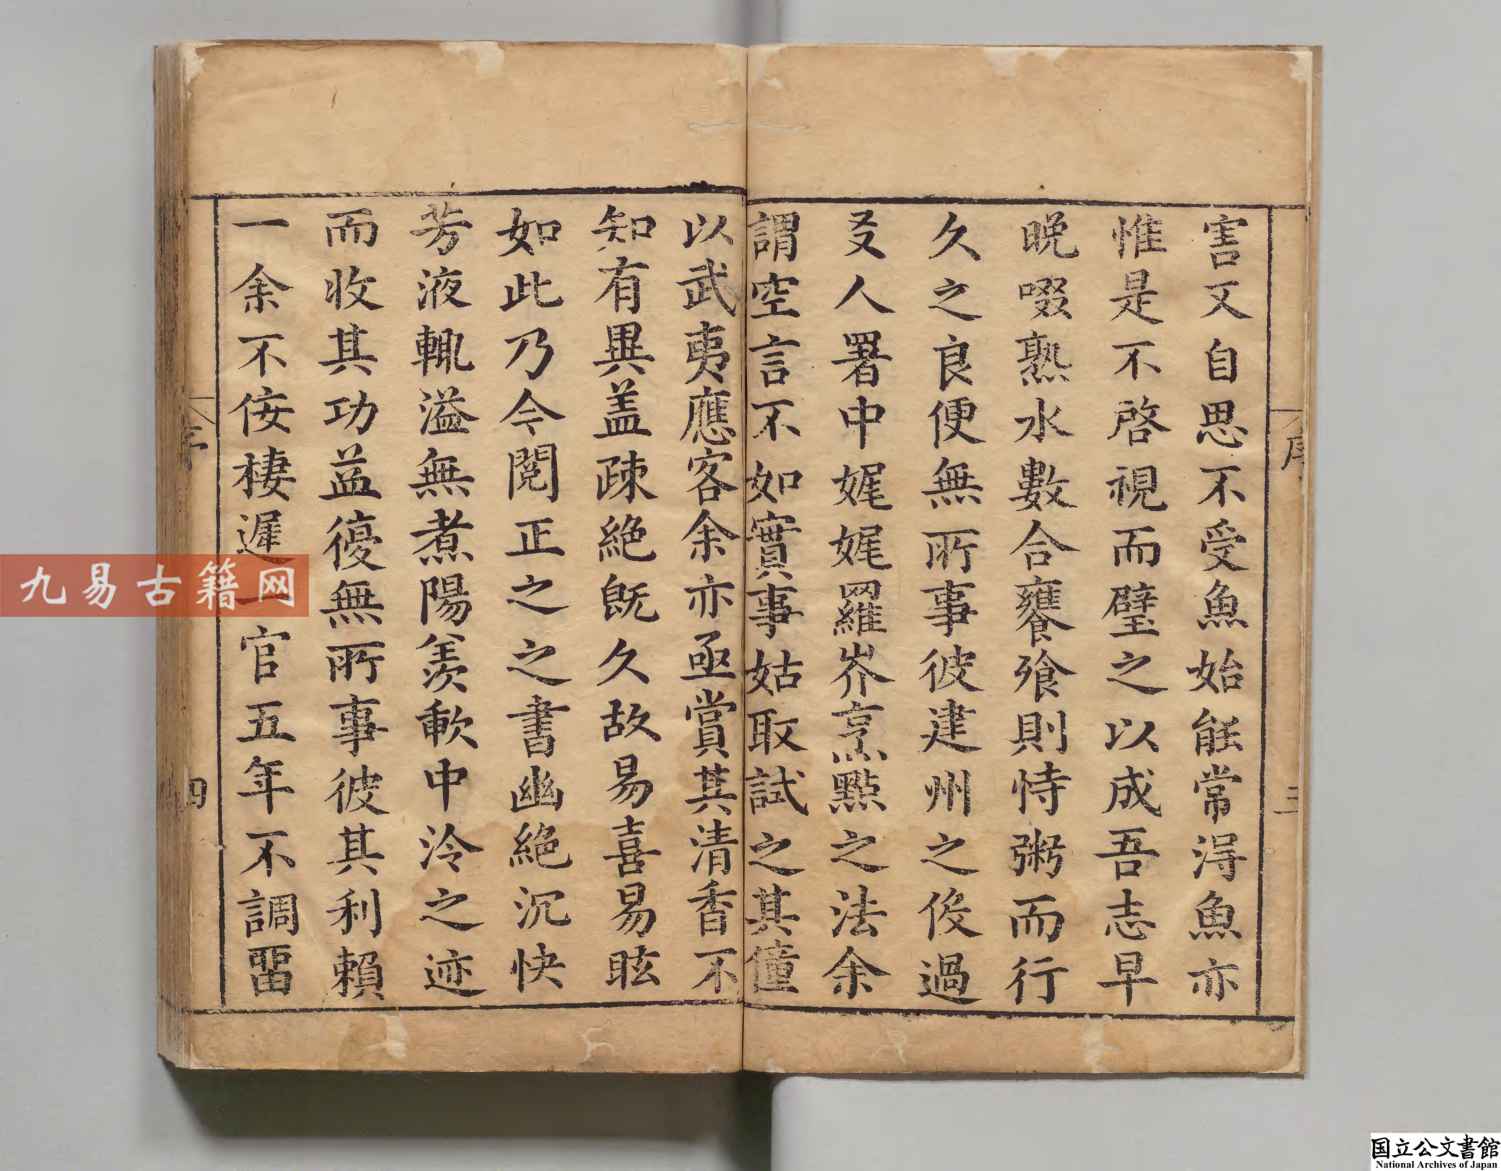 害又自思不受魚始能常得魚亦
惟是不啓視而璧之以成吾志早
晚啜熟水數合饔飱則恃粥而行
久之良便無所事彼建州之後過
友人署中娓娓羅岕烹點之法余
謂空言不如實事姑取試之其僮
以武夷應客余亦亟賞其清香不
知有異盖疎絶既久故易喜易眩
如此乃今閱正之之書幽絶沉快
芳液輒溢無煮陽羨軟中泠之迹
而收其功益復無所事彼其利賴
一余不佞棲遲一官五年不調畱
序
三
四
九易古籍网
国立公文書館
National Archives of Japan